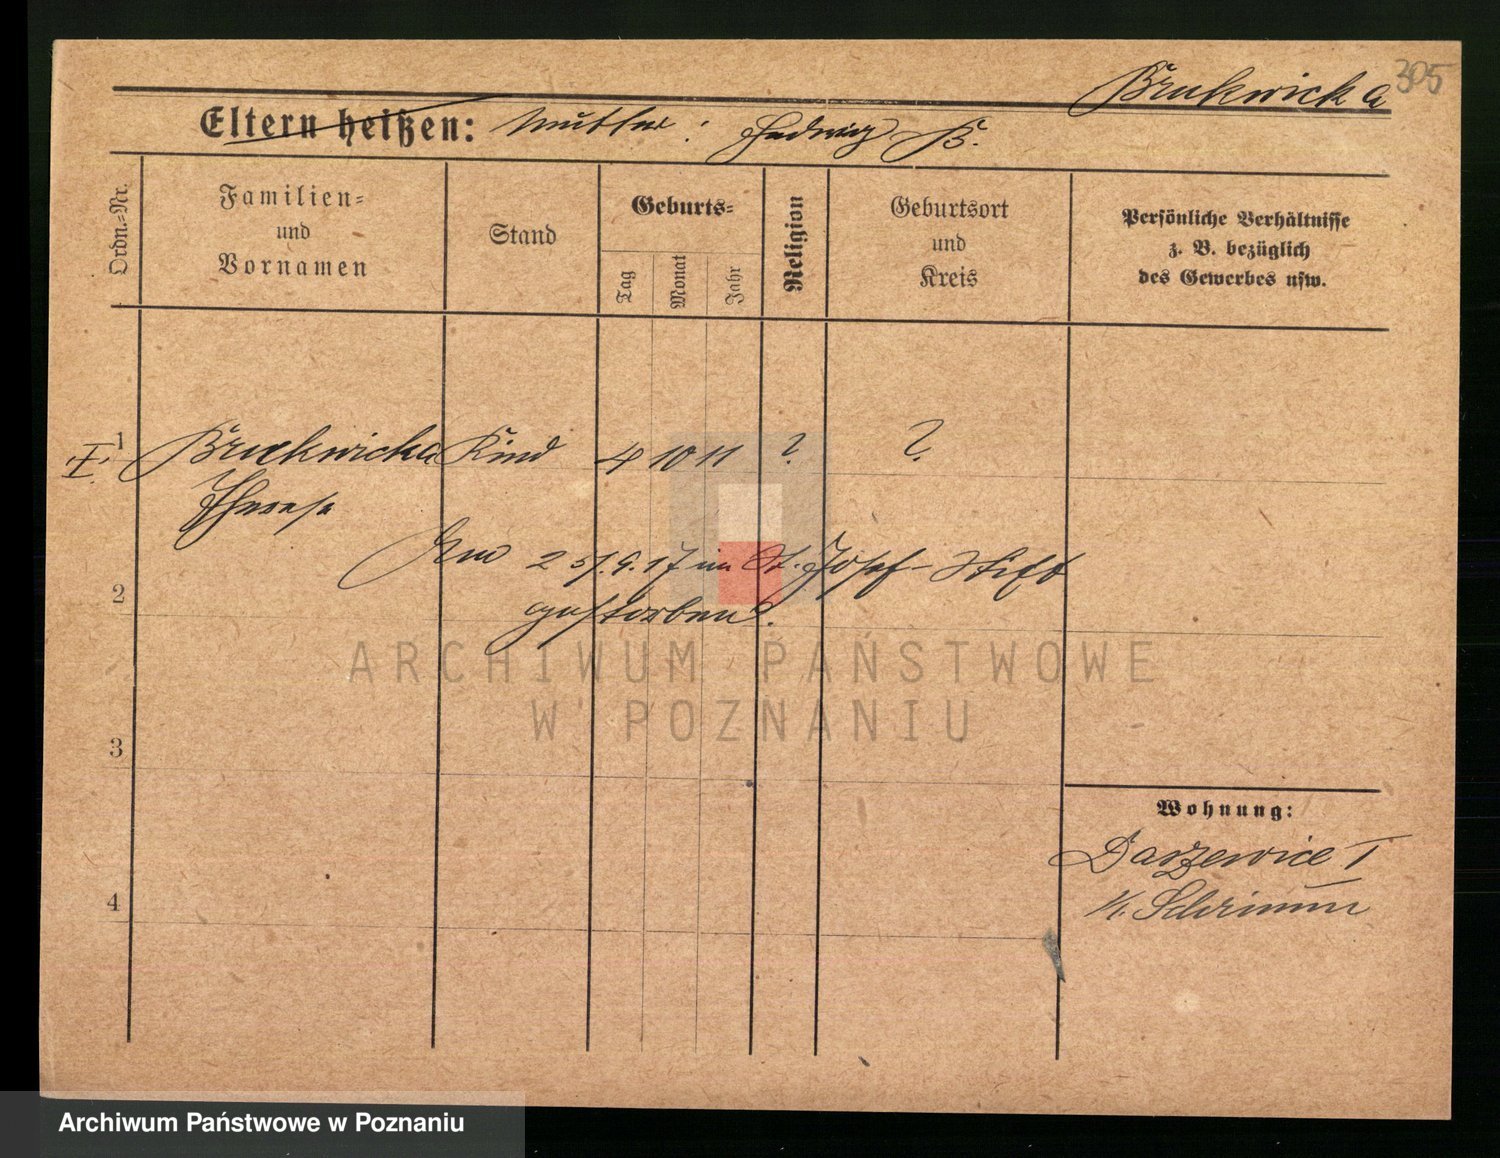 Brukwicka 305
Eltern heißen: Mutter: Hedwig B.
Ordn.-Nr.
Familien-
und
Vornamen
Stand
Geburts-
Tag
Monat
Jahr
Religion
Geburtsort
und
Kreis
Persönliche Verhältnisse
z. B. bezüglich
des Gewerbes usw.
I. 1 Brukwicka Kind 4 10 11 ? ?
Therese
Am 25.9.17 im St. Josef-Stift
2
gestorben.
ARCHIWUM PAŃSTWOWE
W POZNANIU
3
Wohnung:
Darzewice I
K. Schrimm
4
Archiwum Państwowe w Poznaniu